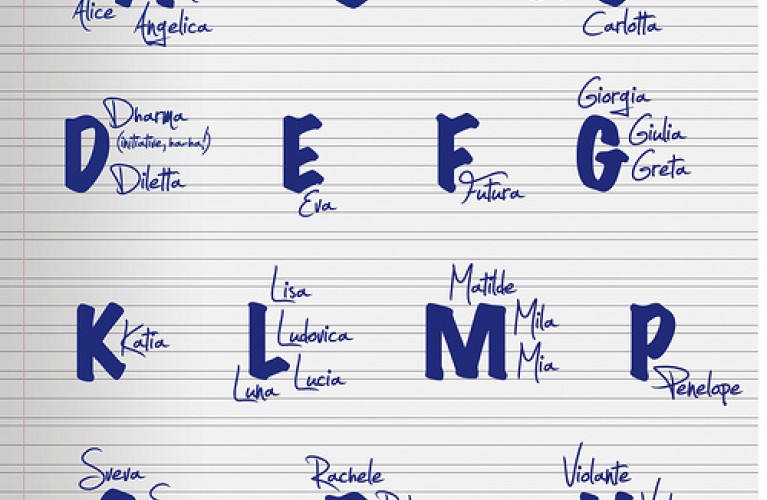 Alice
Angelica
Carlotta
D
Dharma
(initiative, ha-ha!)
Diletta
E
Eva
F
Futura
G
Giorgia
Giulia
Greta
K
Katia
L
Lisa
Ludovica
Lucia
Luna
M
Matilde
Mila
Mia
P
Penelope
Sveva
Rachele
Violante